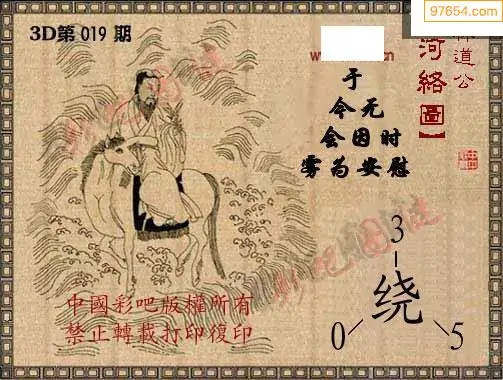 97654.com
3D第 019 期
道公
河絡【圖】
于
今无
会因时
雾为安慰
彩吧图说
彩吧图说
3
绕
0
5
中國彩吧版權所有
禁止轉載打印復印